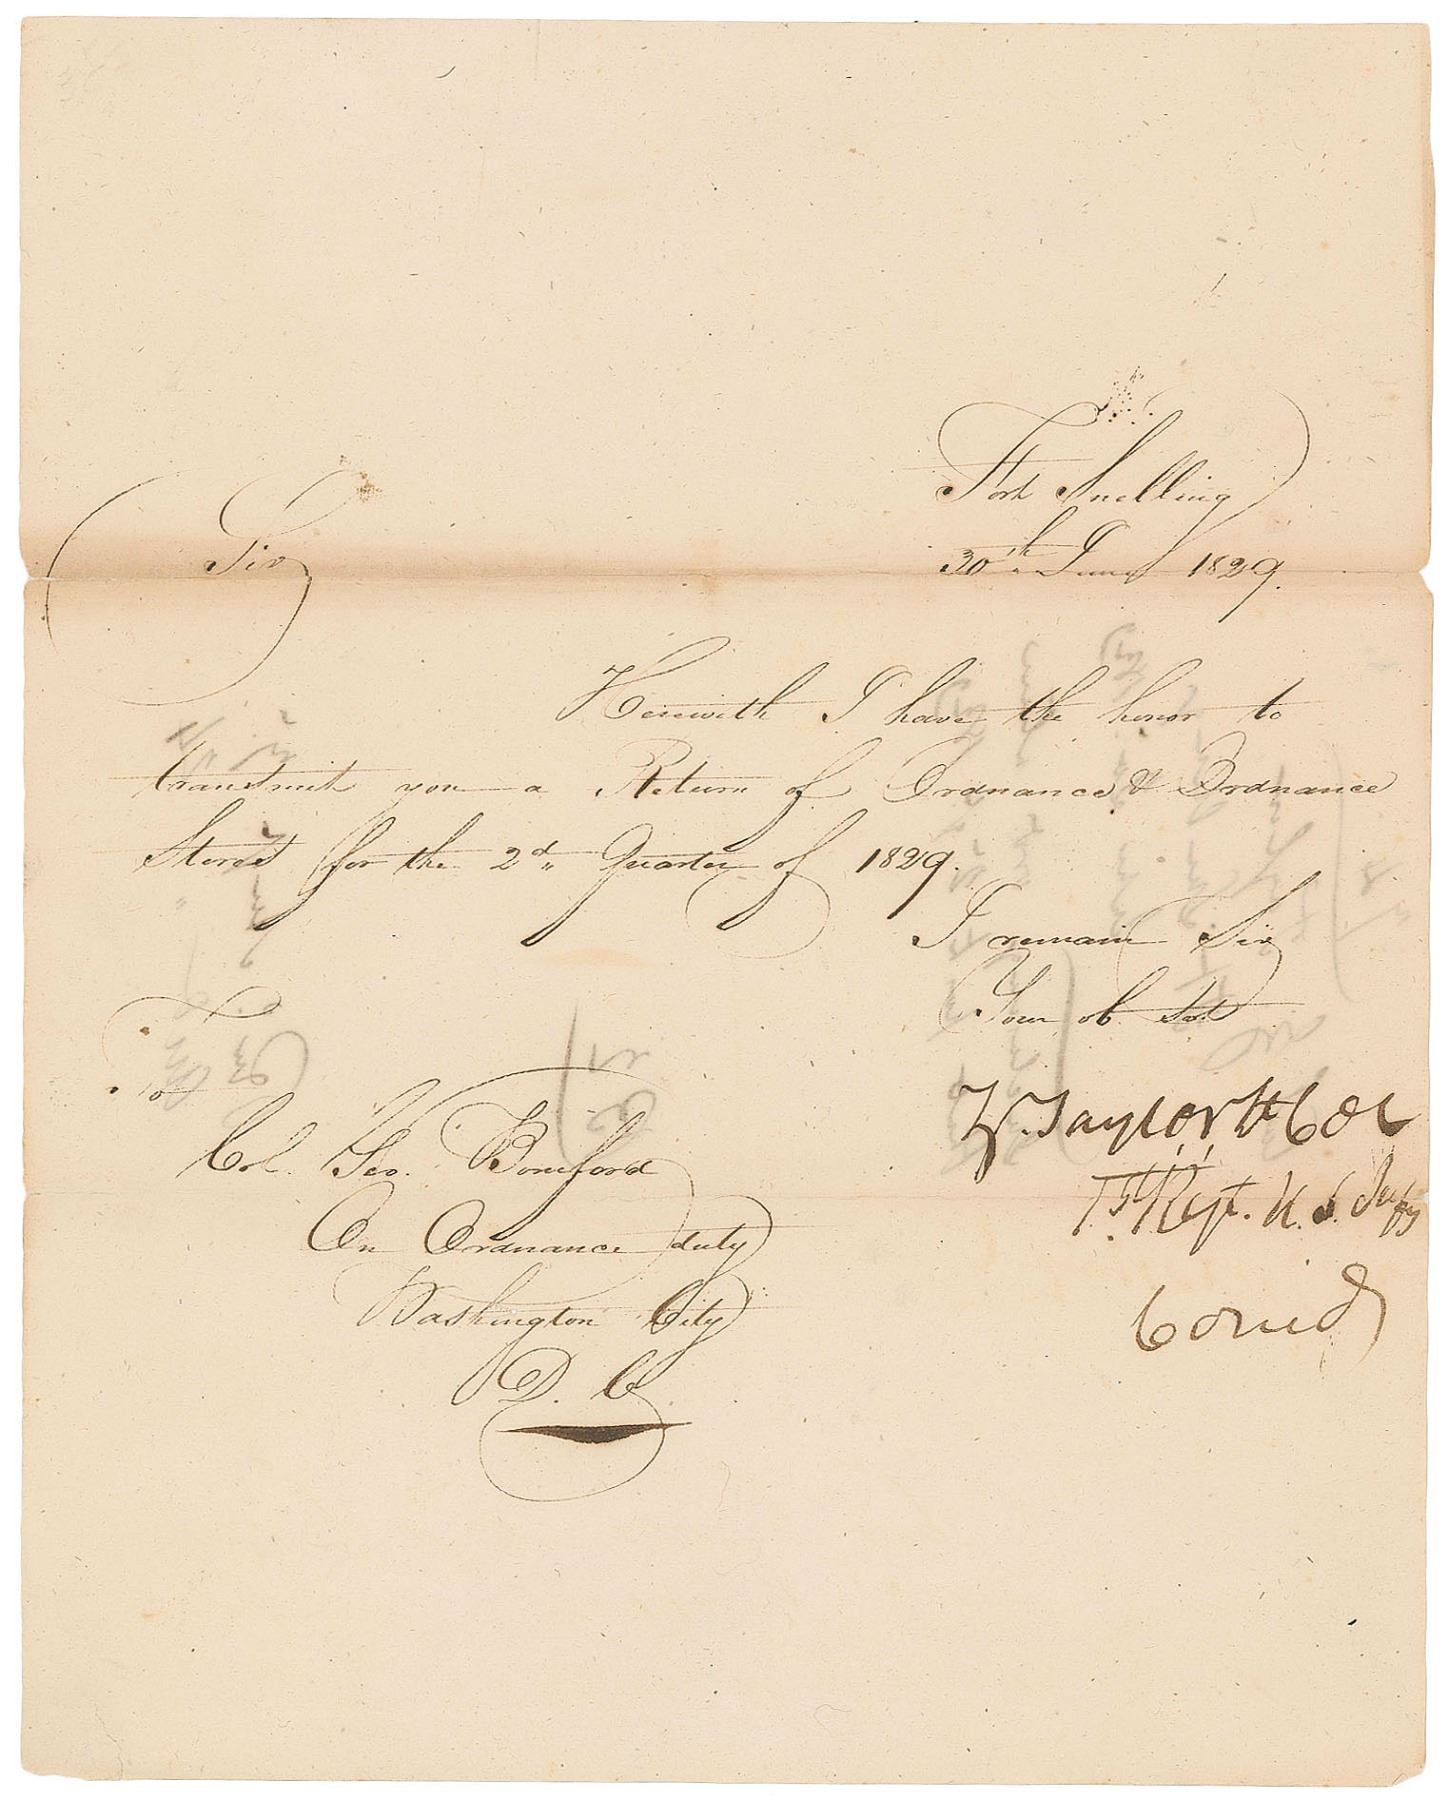 Fort Snelling
30th June 1829.
Sir
Herewith I have the honor to
transmit you a Return of Ordnance & Ordnance
Stores for the 2d. Quarter of 1829.
I remain Sir
Your ob. Svt
Z. Taylor Lt Col
1st Regt. U. S. Infy
Comd
To
Col. Geo. Bomford
On Ordnance duty
Washington City
D. C.